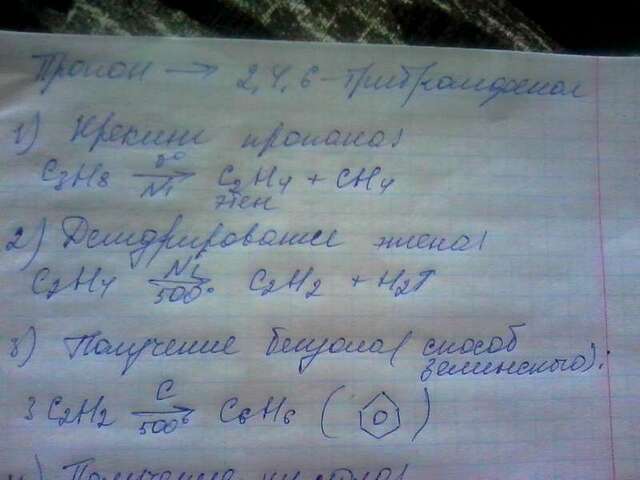 Пропан → 2,4,6-трибромфенол
1) Крекинг пропана:
C3H8 t° → Ni C2H4 + CH4
этен
2) Дегидрирование этена:
C2H4 Ni → 500° C2H2 + H2↑
3) Получение бензола (способ
Зелинского):
3C2H2 C → 500° C6H6 ( )
Получение